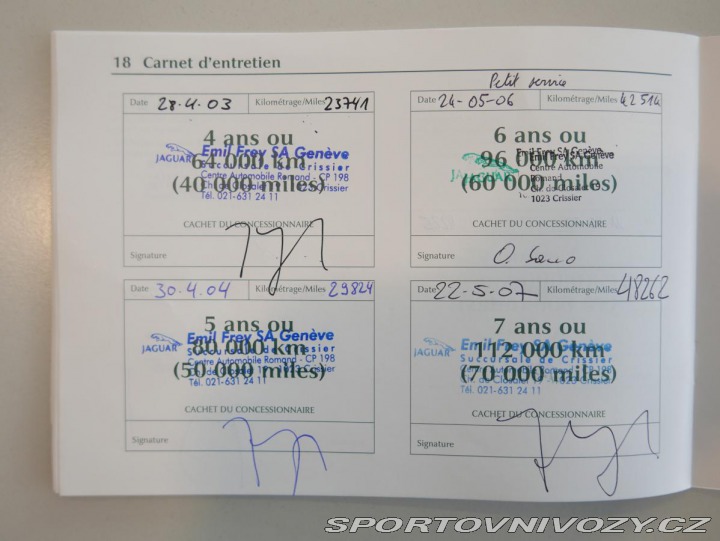 18 Carnet d'entretien
Date 28.4.03 Kilométrage/Miles 23741
4 ans ou
64 000 km
(40 000 miles)
JAGUAR
Emil Frey SA Genève
Succursale de Crissier
Centre Automobile Romand - CP 198
Crissier
Tél. 021-631 24 11
CACHET DU CONCESSIONNAIRE
Signature
Petit service
Date 24-05-06 Kilométrage/Miles 42514
6 ans ou
96 000 km
(60 000 miles)
JAGUAR
Emil Frey SA Genève
Centre Automobile
Romand
1023 Crissier
CACHET DU CONCESSIONNAIRE
Signature
Date 30.4.04 Kilométrage/Miles 29824
5 ans ou
80 000 km
(50 000 miles)
JAGUAR
Emil Frey SA Genève
Succursale de Crissier
Centre Automobile Romand - CP 198
1023 Crissier
Tél. 021-631 24 11
CACHET DU CONCESSIONNAIRE
Signature
Date 22-5-07 Kilométrage/Miles 48262
7 ans ou
112 000 km
(70 000 miles)
JAGUAR
Emil Frey SA Genève
Succursale de Crissier
Centre Automobile Romand - CP 198
1023 Crissier
Tél. 021-631 24 11
CACHET DU CONCESSIONNAIRE
Signature
SPORTOVNIVOZY.CZ